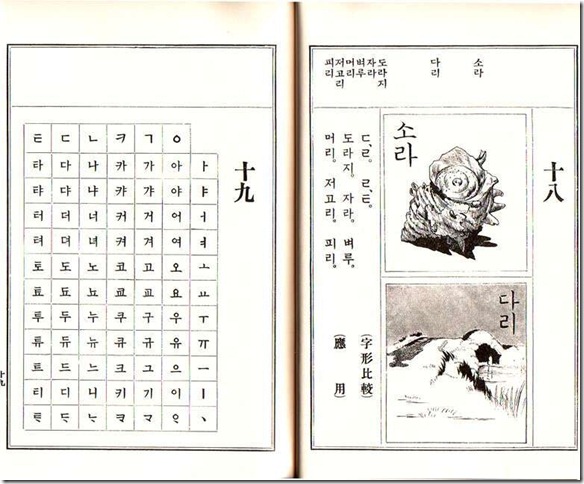 十八
소라
다리
도라지
자라
벼루
머리
저고리
피리
소라
다리
ㄷ, ㄹ。 ㄹ, ㅌ。 (字形比較)
도라지。 자라。 벼루。 (應用)
머리。 저고리。 피리。
十九
ㅌ ㄷ ㄴ ㅋ ㄱ ㅇ
타 다 나 카 가 아 ㅏ
탸 댜 냐 캬 갸 야 ㅑ
터 더 너 커 거 어 ㅓ
텨 뎌 녀 켜 겨 여 ㅕ
토 도 노 코 고 오 ㅗ
툐 됴 뇨 쿄 교 요 ㅛ
투 두 누 쿠 구 우 ㅜ
튜 듀 뉴 큐 규 유 ㅠ
트 드 느 크 그 으 ㅡ
티 디 니 키 기 이 ㅣ
ᄐᆞ ᄃᆞ ᄂᆞ ᄏᆞ ᄀᆞ ᄋᆞ ㆍ
十九